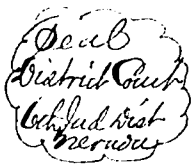 Seal
District Court
6th Jud Dist
Nevada